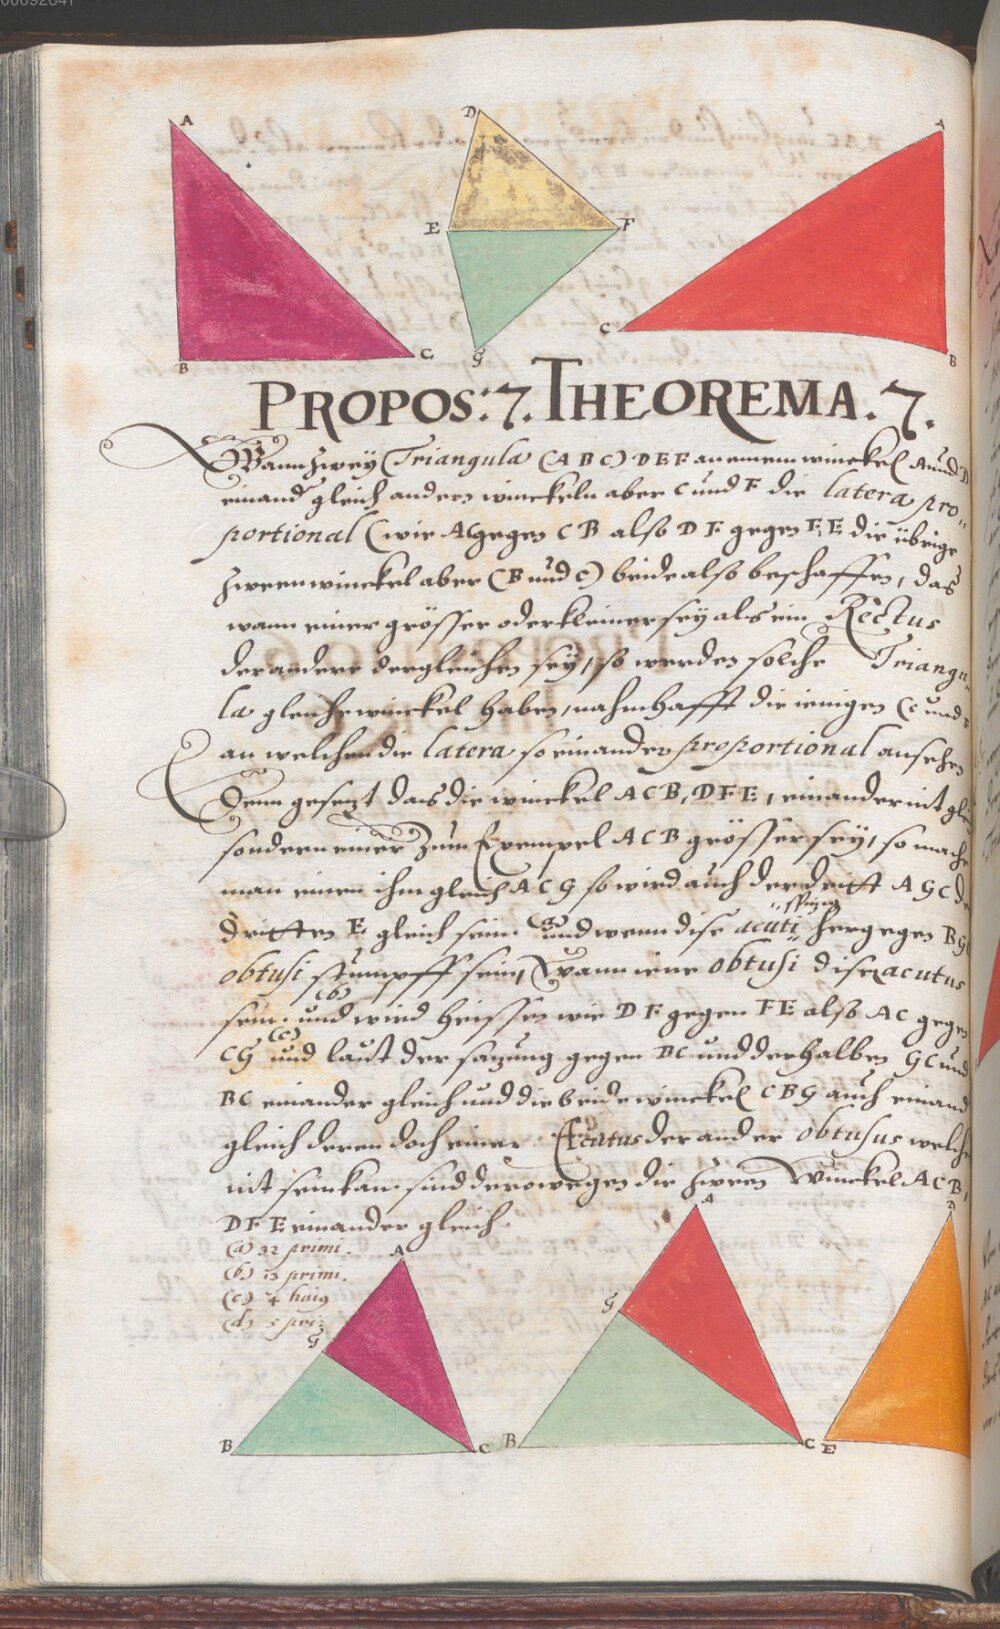 00092641
A D A
E F
C
B G C B
PROPOS: 7. THEOREMA. 7.
Wann zweÿ Triangula (A B C) D E F an einem winckel A und D
einand gleich andern winckeln aber C und F die latera pro-
portional (wie AC gegen C B also D F gegen F E die übrige
zween winckel aber (B und E) beide also beschaffen, das
wann einer grösser oder kleiner seÿ als ein Rectus
der andere dergleichen seÿ, so werden solche Triangu-
la gleiche winckel haben, nahmhafft die ienigen C und F
an welchen die latera so einander proportional ansehen
Denn gesezt das die winckel A C B, D F E, einander nit gle
sondern einer Zum Exempel A C B grösser seÿ, so mache
man einen ihm gleich A C G so wird auch der dritt A G C de
dritten E gleich sein. (a) und wenn dise acuti spizig hergegen B G C
obtusi stumpff sein, Wann iene obtusi dise acutus
sein. (b) und wird heissen wie D F gegen F E also A C gegen
C G (c) und laut der sazung gegen B C und derhalben G C und
B C einander gleich und die beide winckel C B G auch einand
gleich deren doch einer Acutus der ander obtusus welche
nit sein kan. sind derowegen die zween Winckel A C B,
D F E einander gleich.
(a) 32 primi.
(b) 13 primi.
(c) 7 huig
(d) 5 pri:
A A D
G G
B C B C E